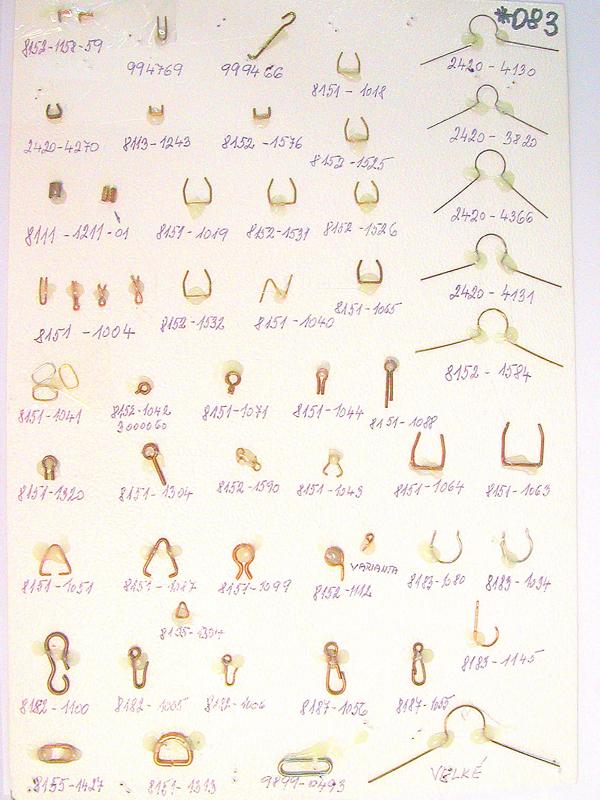 *D83
8152-1158-59
994769
999466
8151-1018
2420-4130
2420-4270
8113-1243
8152-1576
8152-1525
2420-3820
8111-1211-01
8151-1019
8152-1531
8152-1526
2420-4366
8151-1004
8152-1532
8151-1040
8151-1065
2420-4131
8152-1584
8151-1041
8152-1042
3000060
8151-1071
8151-1044
8151-1088
8151-1320
8151-1304
8152-1590
8151-1043
8151-1064
8151-1063
8151-1051
8151-1087
8151-1099
8152-1112
VARIANTA
8183-1080
8183-1034
8183-1145
8182-1100
8182-1005
8187-1056
8155-1427
8151-1313
9899-0493
VELKÉ